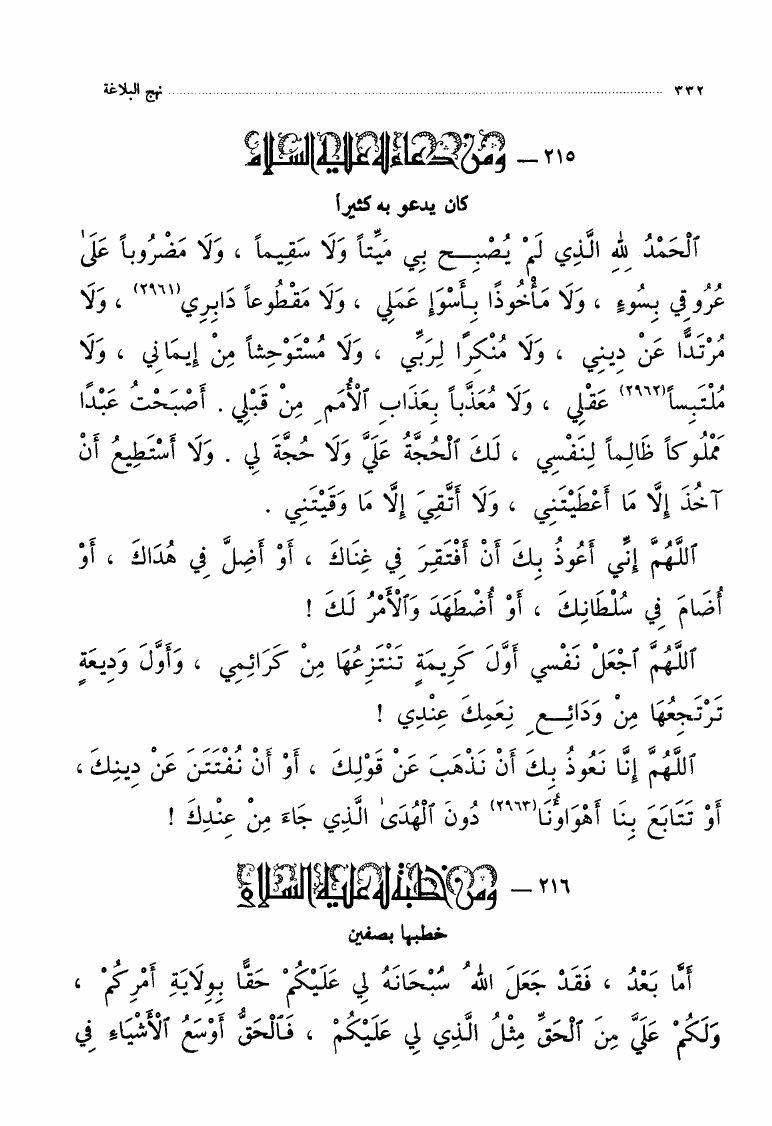 ٣٣٢ ........ نهج البلاغة
٢١٥ – ومن دعاء له عليه السلام
كان يدعو به كثيراً
ٱلْحَمْدُ لِلهِ الَّذِي لَمْ يُصْبِـحْ بِي مَيِّتاً وَلَا سَقِيماً ، وَلَا مَضْرُوباً عَلَىٰ
عُرُوقِي بِسُوءٍ ، وَلَا مَأْخُوذًا بِأَسْوَإِ عَمَلِي ، وَلَا مَقْطُوعاً دَابِرِي(٢٩٦١) ، وَلَا
مُرْتَدًّا عَنْ دِينِي ، وَلَا مُنْكِرًا لِرَبِّي ، وَلَا مُسْتَوْحِشاً مِنْ إِيمَانِي ، وَلَا
مُلْتَبِساً(٢٩٦٢) عَقْلِي ، وَلَا مُعَذَّباً بِعَذَابِ ٱلْأُمَمِ مِنْ قَبْلِي . أَصْبَحْتُ عَبْدًا
مَمْلُوكاً ظَالِماً لِنَفْسِي ، لَكَ ٱلْحُجَّةُ عَلَيَّ وَلَا حُجَّةَ لِي . وَلَا أَسْتَطِيعُ أَنْ
آخُذَ إِلَّا مَا أَعْطَيْتَنِي ، وَلَا أَتَّقِيَ إِلَّا مَا وَقَيْتَنِي .
ٱللَّهُمَّ إِنِّي أَعُوذُ بِكَ أَنْ أَفْتَقِرَ فِي غِنَاكَ ، أَوْ أَضِلَّ فِي هُدَاكَ ، أَوْ
أُضَامَ فِي سُلْطَانِكَ ، أَوْ أُضْطَهَدَ وَٱلْأَمْرُ لَكَ !
ٱللَّهُمَّ ٱجْعَلْ نَفْسِي أَوَّلَ كَرِيمَةٍ تَنْتَزِعُهَا مِنْ كَرَائِمِي ، وَأَوَّلَ وَدِيعَةٍ
تَرْتَجِعُهَا مِنْ وَدَائِـعِ نِعَمِكَ عِنْدِي !
ٱللَّهُمَّ إِنَّا نَعُوذُ بِكَ أَنْ نَذْهَبَ عَنْ قَوْلِكَ ، أَوْ أَنْ نُفْتَتَنَ عَنْ دِينِكَ ،
أَوْ تَتَابَعَ بِنَا أَهْوَاؤُنَا(٢٩٦٣) دُونَ ٱلْهُدَىٰ الَّذِي جَاءَ مِنْ عِنْدِكَ !
٢١٦ – ومن خطبة له عليه السلام
خطبها بصفين
أَمَّا بَعْدُ ، فَقَدْ جَعَلَ اللهُ سُبْحَانَهُ لِي عَلَيْكُمْ حَقًّا بِوِلَايَةِ أَمْرِكُمْ ،
وَلَكُمْ عَلَيَّ مِنَ ٱلْحَقِّ مِثْلُ الَّذِي لِي عَلَيْكُمْ ، فَٱلْحَقُّ أَوْسَعُ ٱلْأَشْيَاءِ فِي